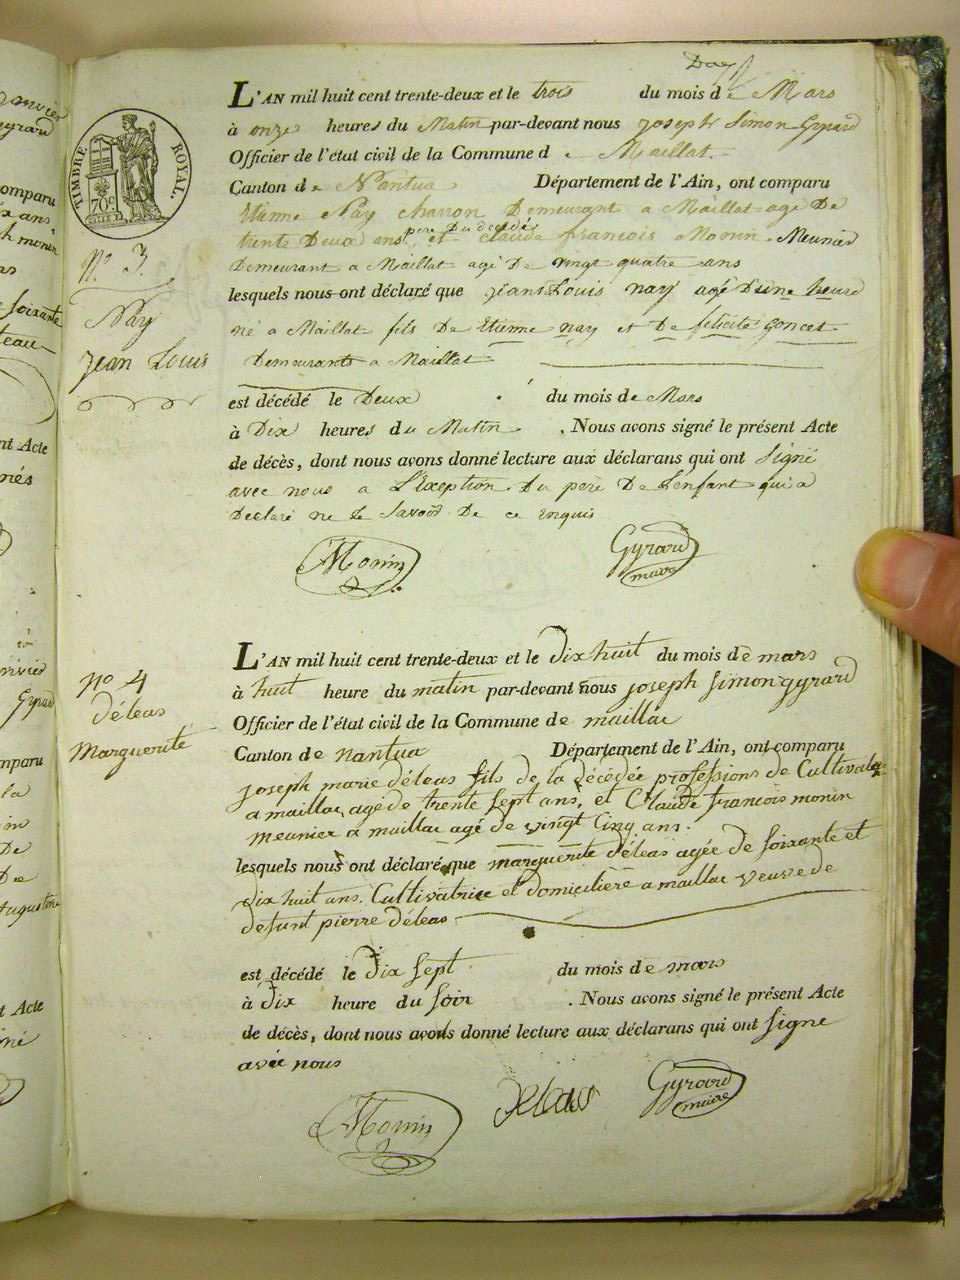 TIMBRE ROYAL.
70c
N.° 3.
Nay
Jean Louis
L'AN mil huit cent trente-deux et le trois du mois de Mars
à onze heures du Matin par-devant nous joseph Simon Gyrard
Officier de l'état civil de la Commune de Maillat.
Canton de Nantua Département de l'Ain, ont comparu
Etienne Nay charron Demeurant a Maillat agé De
trente Deux ans père Du décédé et claude françois Monin Meunier
Demeurant a Maillat agé De vingt quatre ans
lesquels nous ont déclaré que jean Louis nay agé D'une heure
né a Maillat fils De Etienne nay et De felicité goncet
Demeurants a Maillat
est décédé le Deux du mois de Mars
à Dix heures du Matin. Nous avons signé le présent Acte
de décès, dont nous avons donné lecture aux déclarans qui ont signé
avec nous a L'Exeption Du pere De L'enfant qui a
Declaré ne le Savoir De ce Enquis
Monin Gyrard
maire
no 4
déleas
Marguerite
L'AN mil huit cent trente-deux et le dix huit du mois de mars
à huit heure du matin par-devant nous joseph simon gyrard
Officier de l'état civil de la Commune de maillac
Canton de nantua Département de l'Ain, ont comparu
joseph marie déleas fils de la décédée professions de Cultivateur
a maillac agé de trente sept ans, et Claude françois monin
meunier a maillac agé de vingt Cinq ans.
lesquels nous ont déclaré que marguerite déleas agée de soixante et
dix huit ans. Cultivatrice et domicilière a maillac veuve de
defunt pierre déleas
est décédé le dix sept du mois de mars
à dix heure du soir. Nous avons signé le présent Acte
de décès, dont nous avons donné lecture aux déclarans qui ont signé
avec nous
Monin Deleas Gyrard
maire